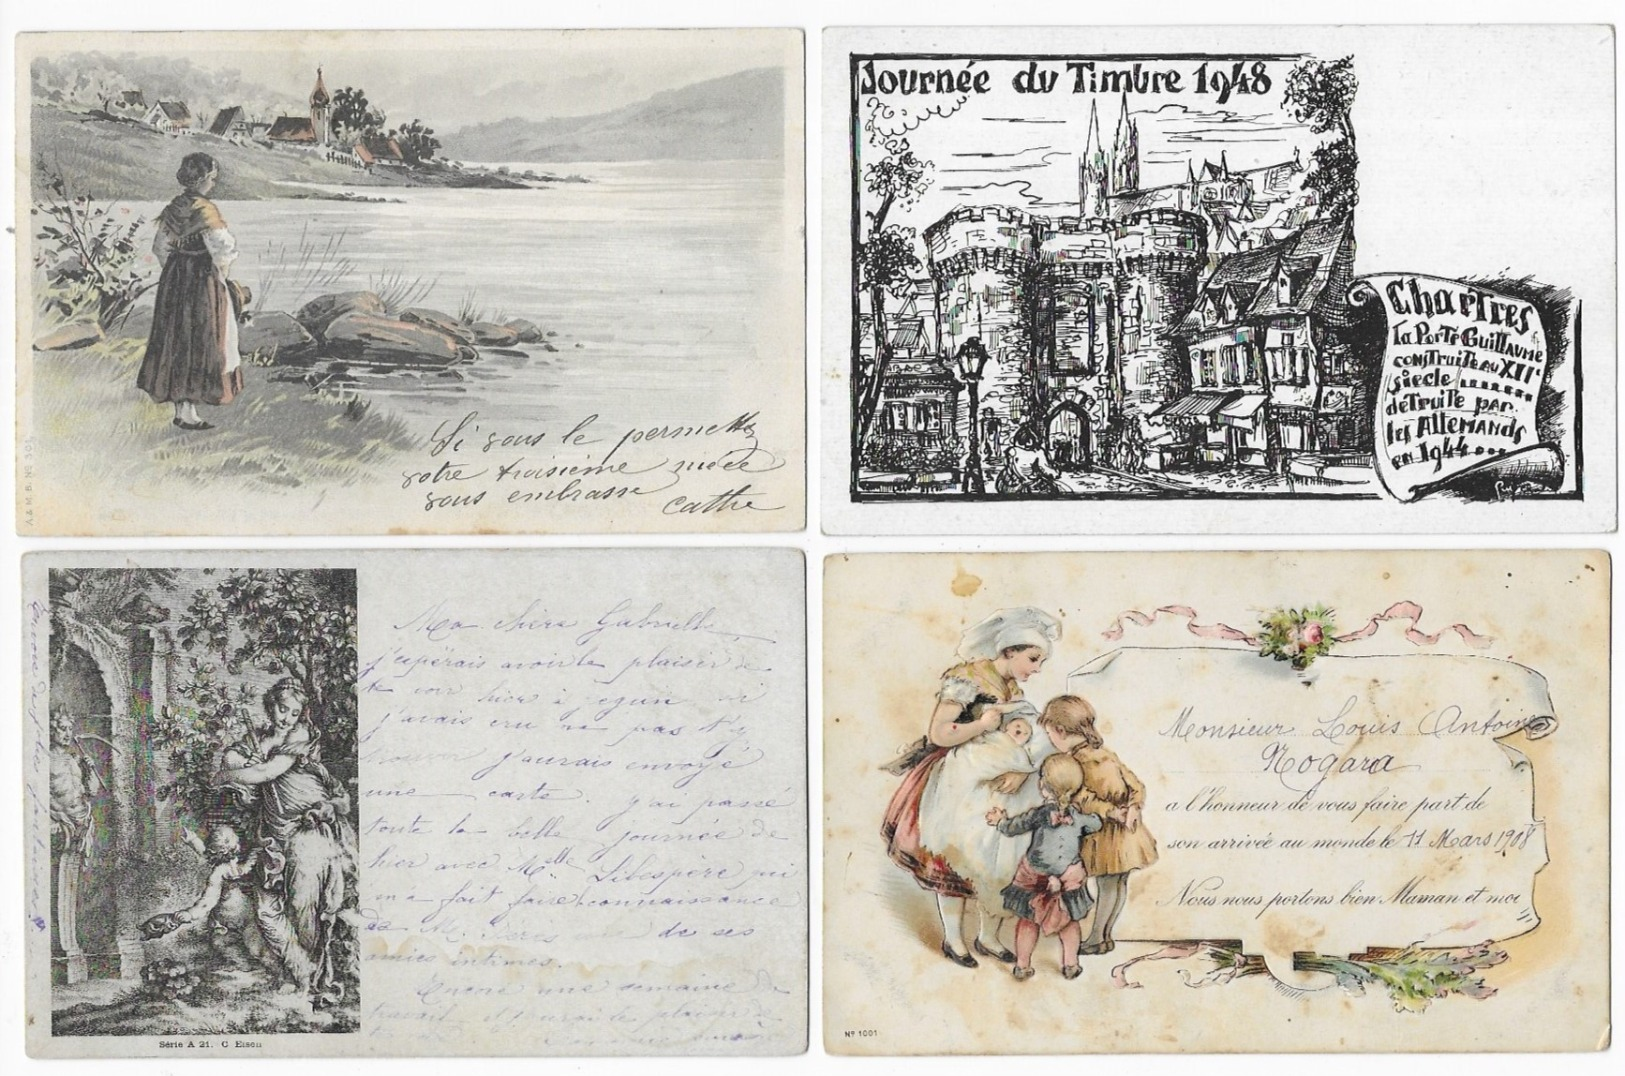 Si vous le permettez
votre troisième nièce
vous embrasse
Cathe
M.M. & V. No 301
Journée du Timbre 1948
Chartres
la Porte Guillaume
construite au XIIe
siecle
détruite par
les Allemands
en 1944...
Ma chère Gabrielle,
j'espérais avoir le plaisir de
te voir hier à Jegun si
j'avais cru ne pas t'y
trouver j'aurais envoyé
une carte. J'ai passé
toute la belle journée de
hier avec Mlle qui
m'a fait faire connaissance
de M. de ses
amies intimes.
Encore une semaine de
travail et j'aurai le plaisir
Série A 21. C Eisen
Monsieur Louis Antoine
Nogara
a l'honneur de vous faire part de
son arrivée au monde le 11 Mars 1908
Nous nous portons bien Maman et moi
No 1001